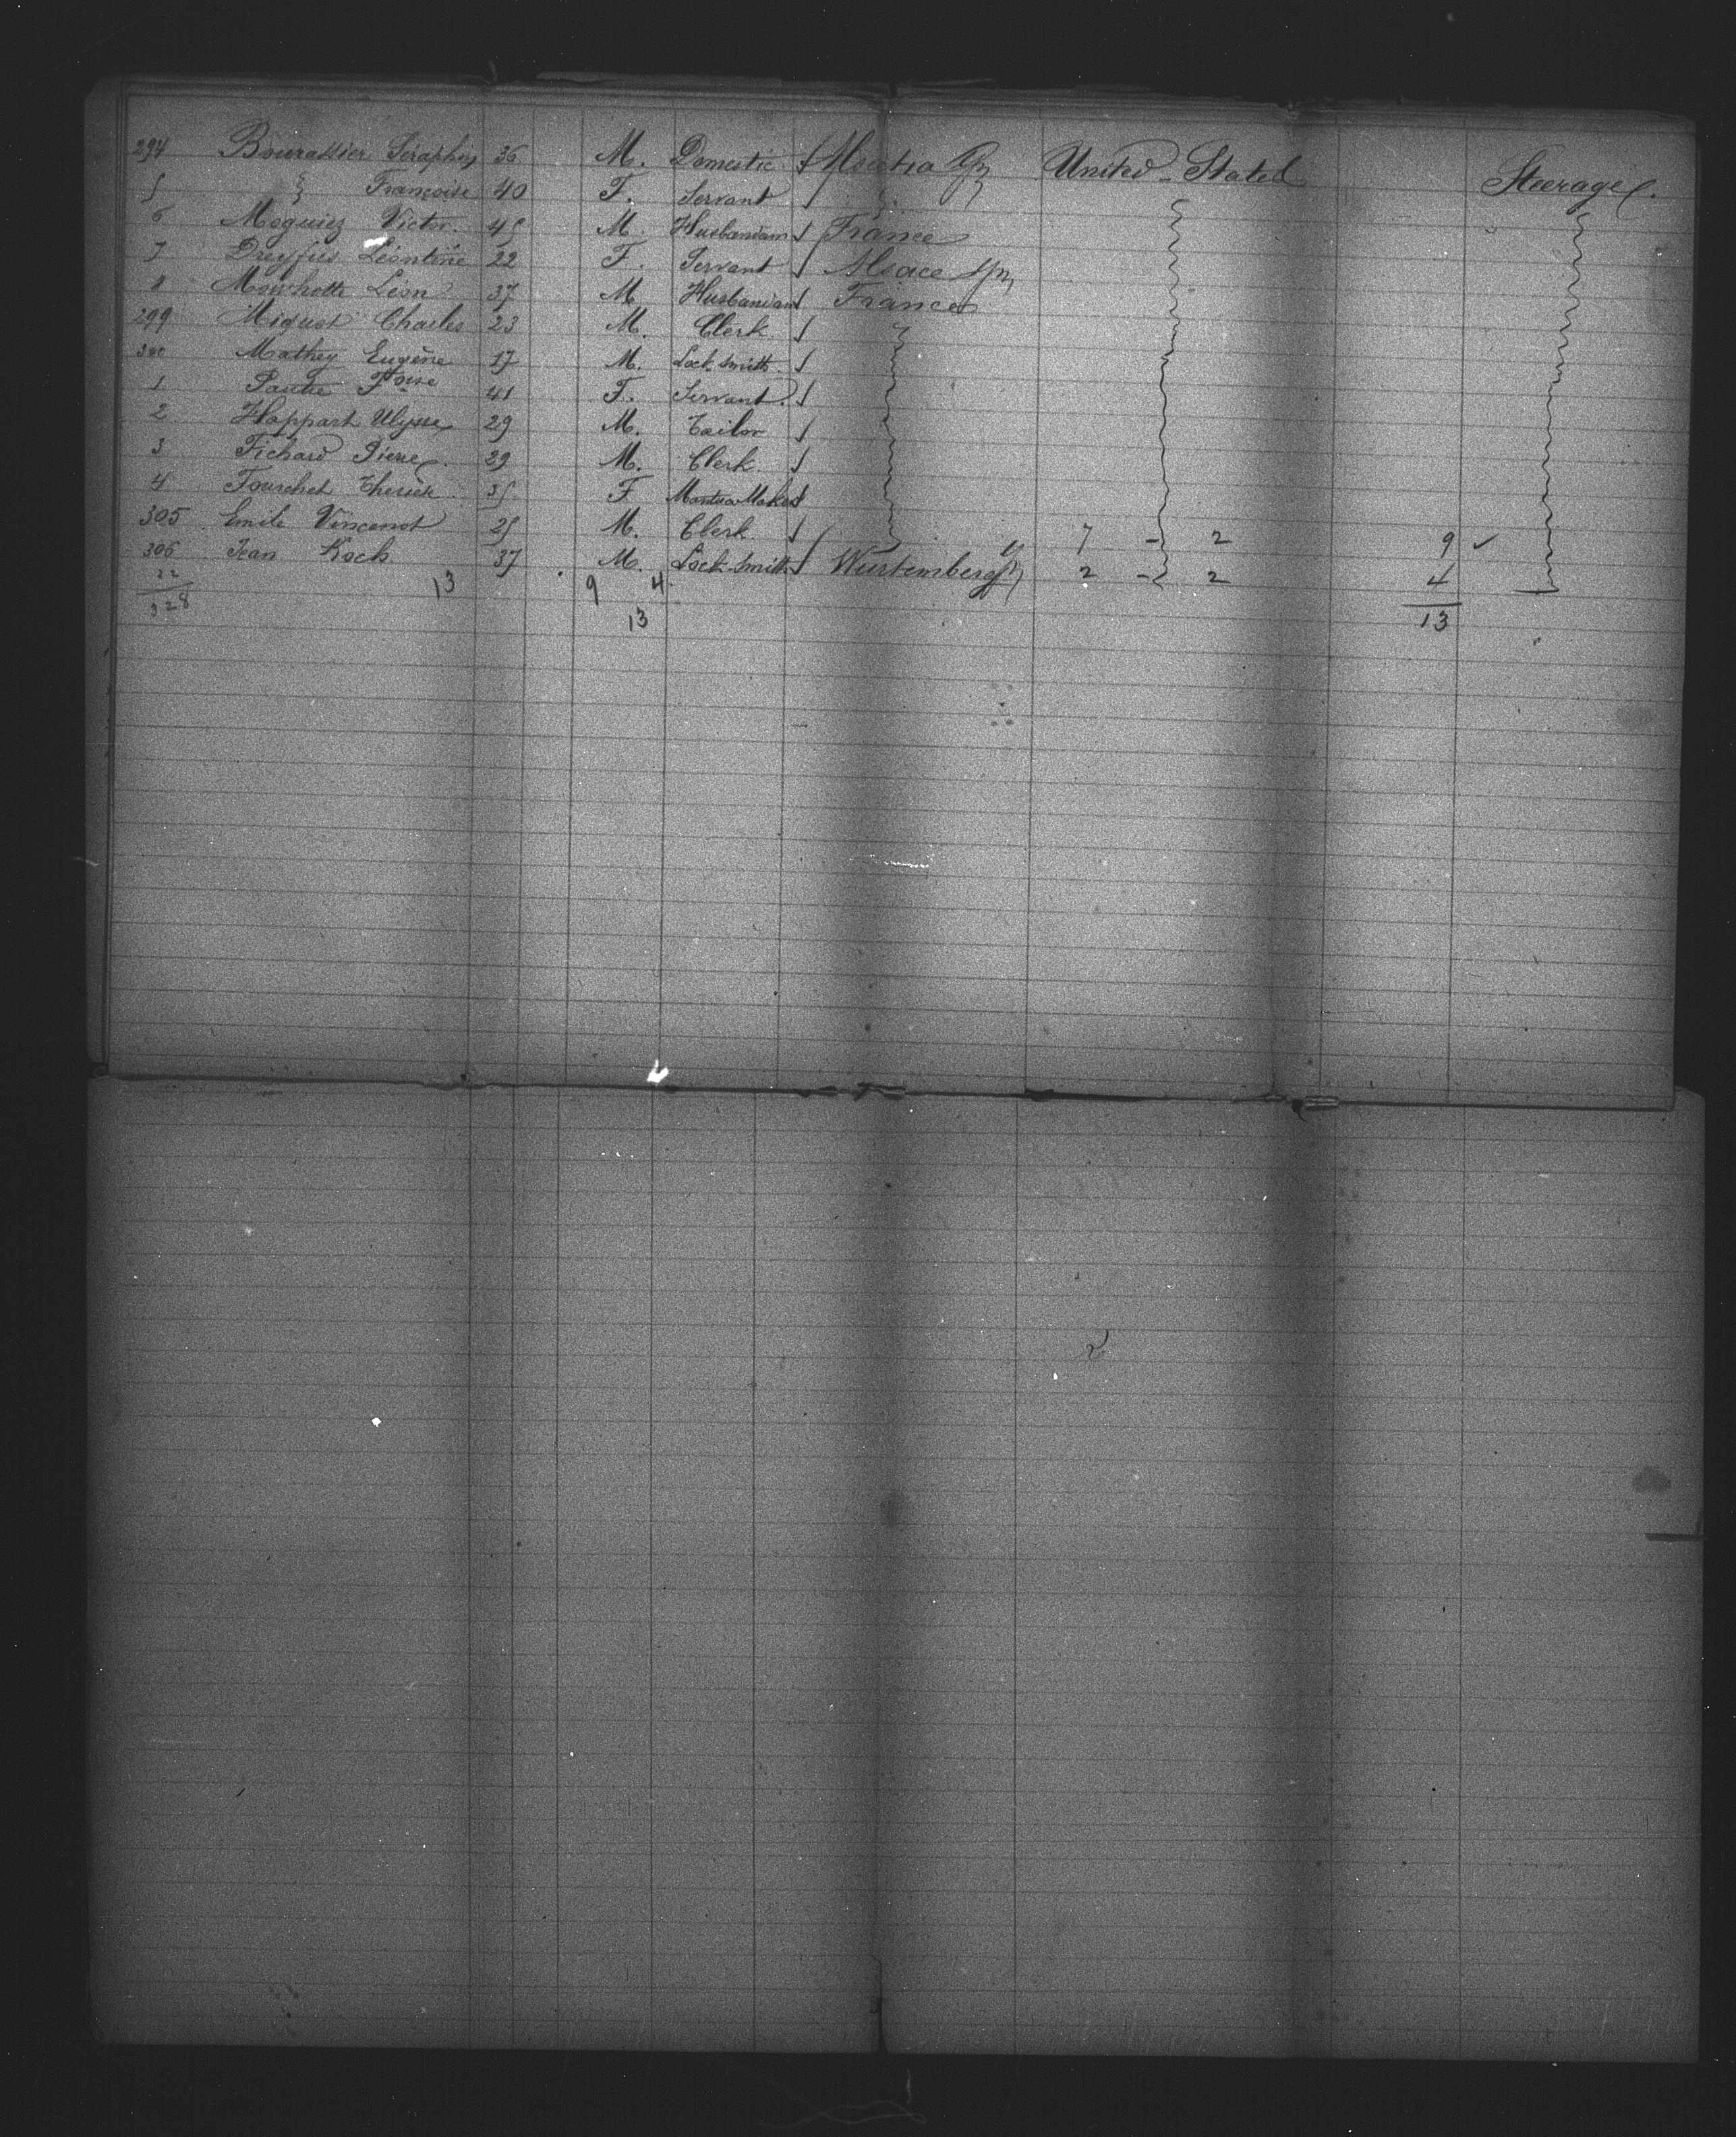 294 Bourassier Séraphin 36 M. Domestic United States Steerage.
5 " Françoise 40 F. Servant
6 Victor. 45 M. Husbandman France
7 Dreyfus Léontine 22 F. Servant Alsace
8 Léon 37 M Husbandman France
299 Miquot Charles 23 M. Clerk
300 Mathey Eugène 17 M. Lock-smith
1 41 F. Servant.
2 Happart Ulysse 29 M. Tailor
3 Richard Pierre. 29 M. Clerk
4 Fourchet Thérèse 35 F Mantua Maker
305 Emile Vincenot 25 M. Clerk 7 - 2 9 ✓
306 Jean Koch. 37 M. Lock-smith Wurtemberg 2 - 2 4
22 13 9 4
328 13 13
2